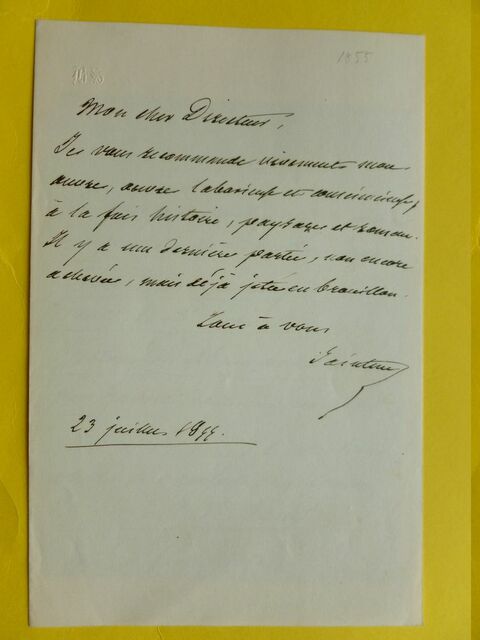 1855
Mon cher Directeur,
Je vous recommande vivement mon
œuvre, œuvre laborieuse et consciencieuse,
à la fois histoire, paysage et roman.
Il y a une dernière partie, non encore
achevée, mais déjà jetée en brouillon.
Tout à vous
23 juillet